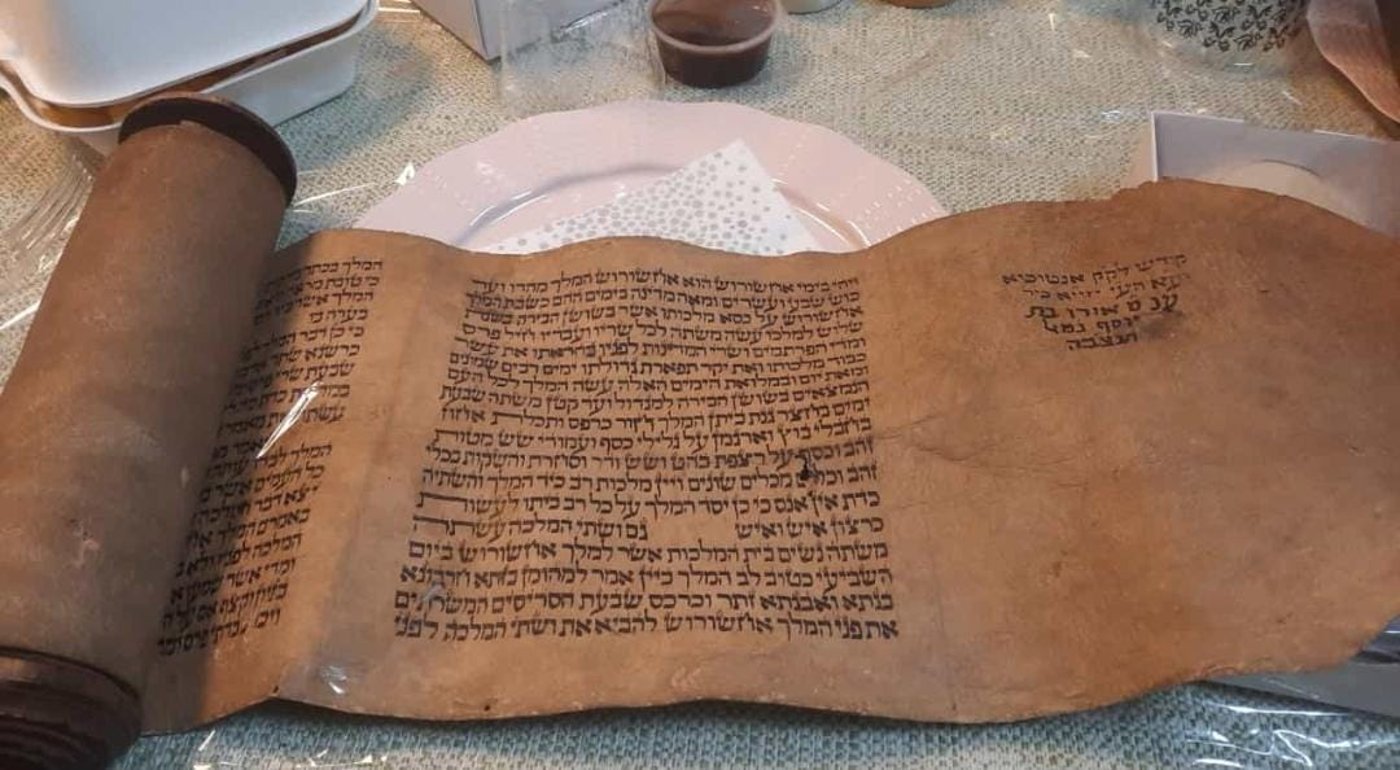 קודש לקק אנטוכיא
ענ ט אורו בת
יוסף גמל
תנצבה
ויהי בימי אחשורוש הוא אחשורוש המלך מהדו ועד
כוש שבע ועשרים ומאה מדינה בימים ההם כשבת המלך
אחשורוש על כסא מלכותו אשר בשושן הבירה בשנת
שלוש למלכו עשה משתה לכל שריו ועבדיו חיל פרס
ומדי הפרתמים ושרי המדינות לפניו בהראתו את עשר
כבוד מלכותו ואת יקר תפארת גדולתו ימים רבים שמונים
ומאת יום ובמלואת הימים האלה עשה המלך לכל העם
הנמצאים בשושן הבירה למגדול ועד קטן משתה שבעת
ימים בחצר גנת ביתן המלך חור כרפס ותכלת אחוז
בחבלי בוץ וארגמן על גלילי כסף ועמודי שש מטות
זהב וכסף על רצפת בהט ושש ודר וסחרת והשקות בכלי
זהב וכלים מכלים שונים ויין מלכות רב כיד המלך והשתיה
כדת אין אנס כי כן יסד המלך על כל רב ביתו לעשות
כרצון איש ואיש גם ושתי המלכה עשתה
משתה נשים בית המלכות אשר למלך אחשורוש ביום
השביעי כטוב לב המלך ביין אמר למהומן בזתא חרבונא
בגתא ואבגתא זתר וכרכס שבעת הסריסים המשרתים
את פני המלך אחשורוש להביא את ושתי המלכה לפני
המלך בכתר
כי טובת
המלך אשר
בערה בו
כי כן דבר
כרשנא שתר
שבעת שרי
במלכות כדת
עשתה את מאמר
המלך
כל העמים אשר
יצא דבר המלכה
באמרם המלך
המלכה לפניו ולא
ומדי אשר שמעו
בזיון וקצף אם על